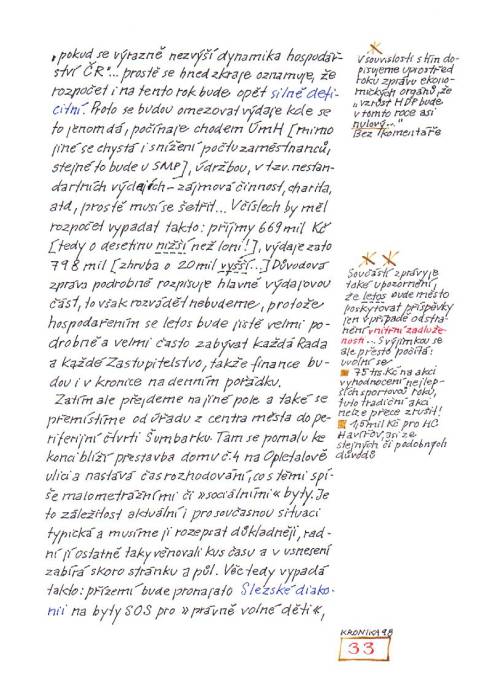 „pokud se výrazně nezvýší dynamika hospodář-
ství ČR"... prostě se hned zkraje oznamuje, že
rozpočet i na tento rok bude opět silně defi-
citní. Proto se budou omezovat výdaje kde se
to jenom dá, počínaje chodem ÚmH [mimo
jiné se chystá i snížení počtu zaměstnanců,
stejné to bude u SMP], údržbou, v tzv. nestan-
dartních výdajích – zájmová činnost, charita,
atd, prostě musí se šetřit... V číslech by měl
rozpočet vypadat takto: příjmy 669 mil Kč
[tedy o desetinu nižší než loni!], výdaje zato
798 mil [zhruba o 20 mil vyšší...] Důvodová
zpráva podrobně rozpisuje hlavně výdajovou
část, to však rozvádět nebudeme, protože
hospodařením se letos bude jistě velmi po-
drobně a velmi často zabývat každá Rada
a každé Zastupitelstvo, takže finance bu-
dou i v kronice na denním pořádku.
Zatím ale přejdeme na jiné pole a také se
přemístíme od úřadu z centra města do pe-
riferijní čtvrti Šumbarku. Tam se pomalu ke
konci blíží přestavba domu č.4 na Opletalově
ulici a nastává čas rozhodování, co s těmi spí-
še malometrážními či »sociálními« byty. Je
to záležitost aktuální i pro současnou situaci
typická a musíme ji rozepsat důkladněji, rad-
ní jí ostatně taky věnovali kus času a v usnesení
zabírá skoro stránku a půl. Věc tedy vypadá
takto: přízemí bude pronajato Slezské diako-
nii na byty SOS pro »právně volné děti«,
V souvislosti s tím do-
pisujeme uprostřed
roku zprávu ekono-
mických orgánů, že
„vzrůst HDP bude
v tomto roce asi
nulový..."
Bez komentáře
Součástí zprávy je
také upozornění,
že letos bude město
poskytovat příspěvky
jen v případě odstra-
nění vnitřní zadluže-
nosti... S výjimkou se
ale přesto počítá:
uvolní se
75 tis. Kč na akci
vyhodnocení nejlep-
ších sportovců roku,
tuto tradiční akci
nelze přece zrušit!
1,5 mil Kč pro HC
Havířov, asi ze
stejných či podobných
důvodů
KRONIKA 98
33